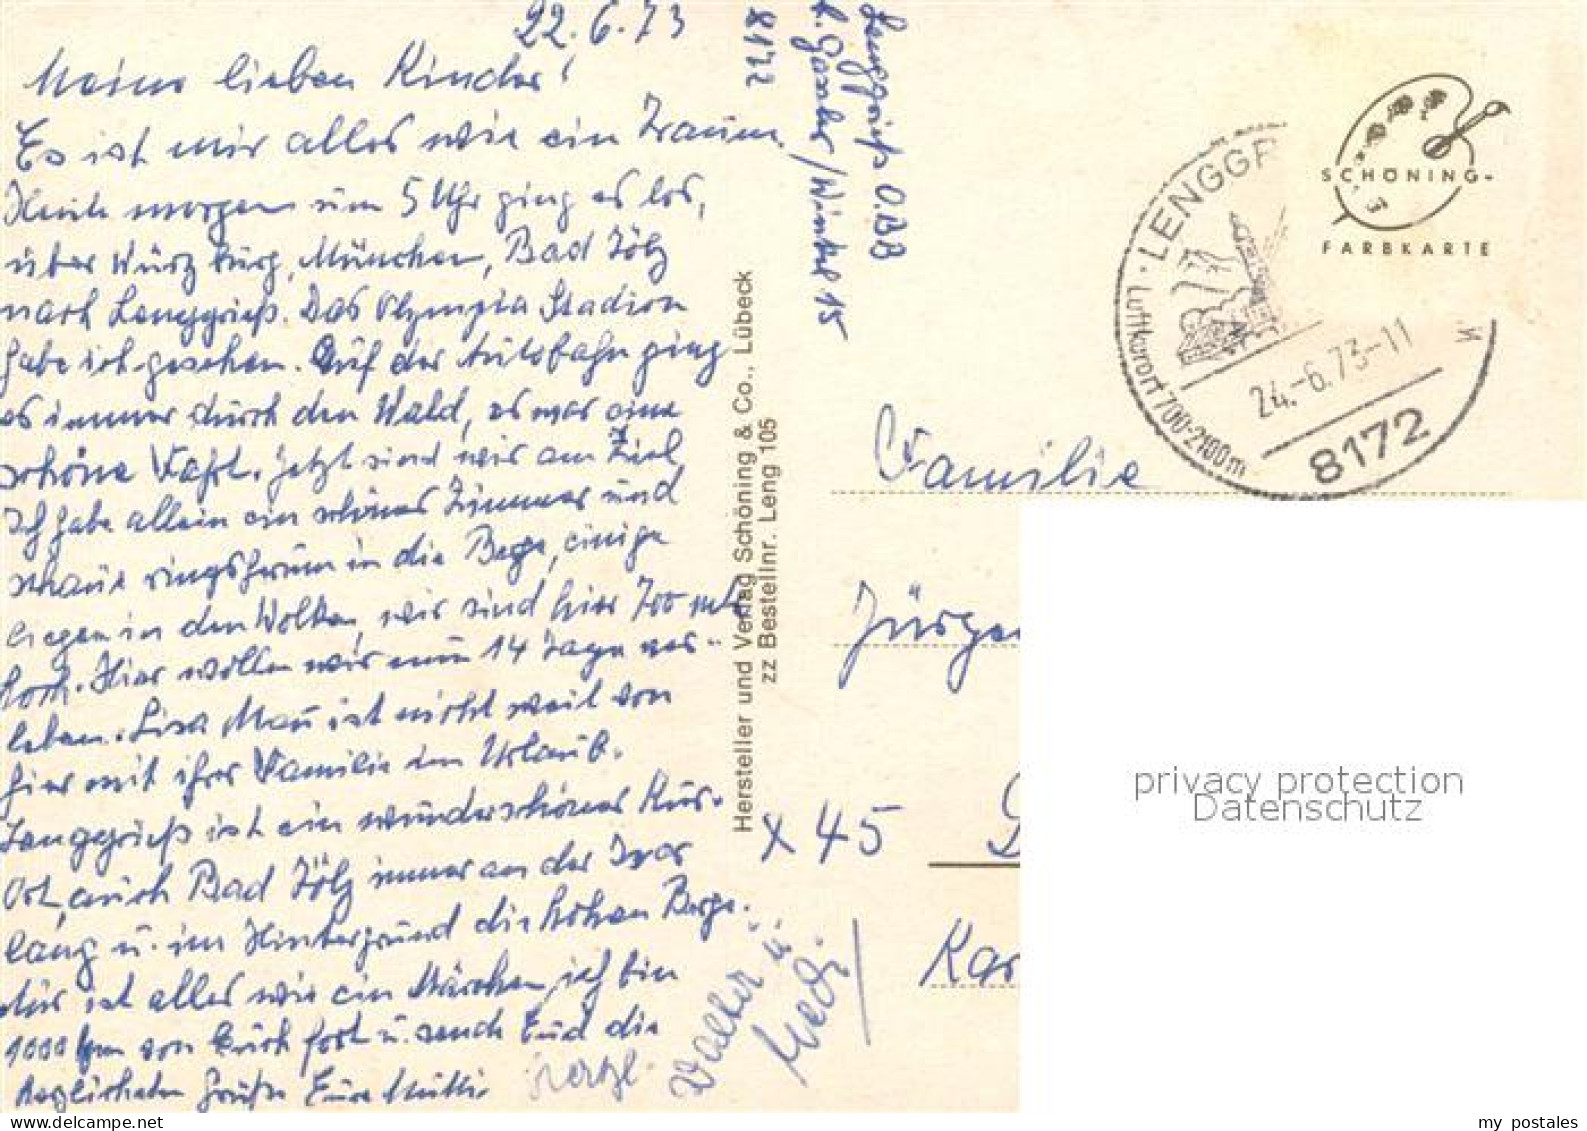 22.6.73
Meine lieben Kinder!
Es ist mir alles wie ein Traum.
Heute morgen um 5 Uhr ging es los,
über Würzburg, München, Bad Tölz
nach Lenggrieß. Das Olympia Stadion
habe ich gesehen. Auf der Autobahn ging
es immer durch den Wald, es war eine
schöne Fahrt. Jetzt sind wir am Ziel,
Ich habe allein ein schönes Zimmer und
schaue ringsherum in die Berge, einige
liegen in den Wolken, wir sind hier 700 mtr
hoch. Hier wollen wir nun 14 Tage ver-
leben. Lisa Mau ist nicht weit von
hier mit ihrer Familie im Urlaub.
Lenggrieß ist ein wunderschöner Kur-
Ort, auch Bad Tölz immer an der Isar
lang u. im Hintergrund die hohen Berge.
Mir ist alles wie ein Märchen, ich bin
1000 km von Euch fort u. sende Eud die
herzlichsten Grüße Eure Mutti
herzl.
Walter u.
Hedi
8172
Lenggrieß O.BB
b. Gassler/Winkel 15
Hersteller und Verlag Schöning & Co., Lübeck
zz Bestellnr. Leng 105
SCHÖNING-
FARBKARTE
LENGGR
Luftkurort 700-2100m
24.-6.73-11
8172
Familie
Jürgen
X 45
Kar
privacy protection
Datenschutz
my postales